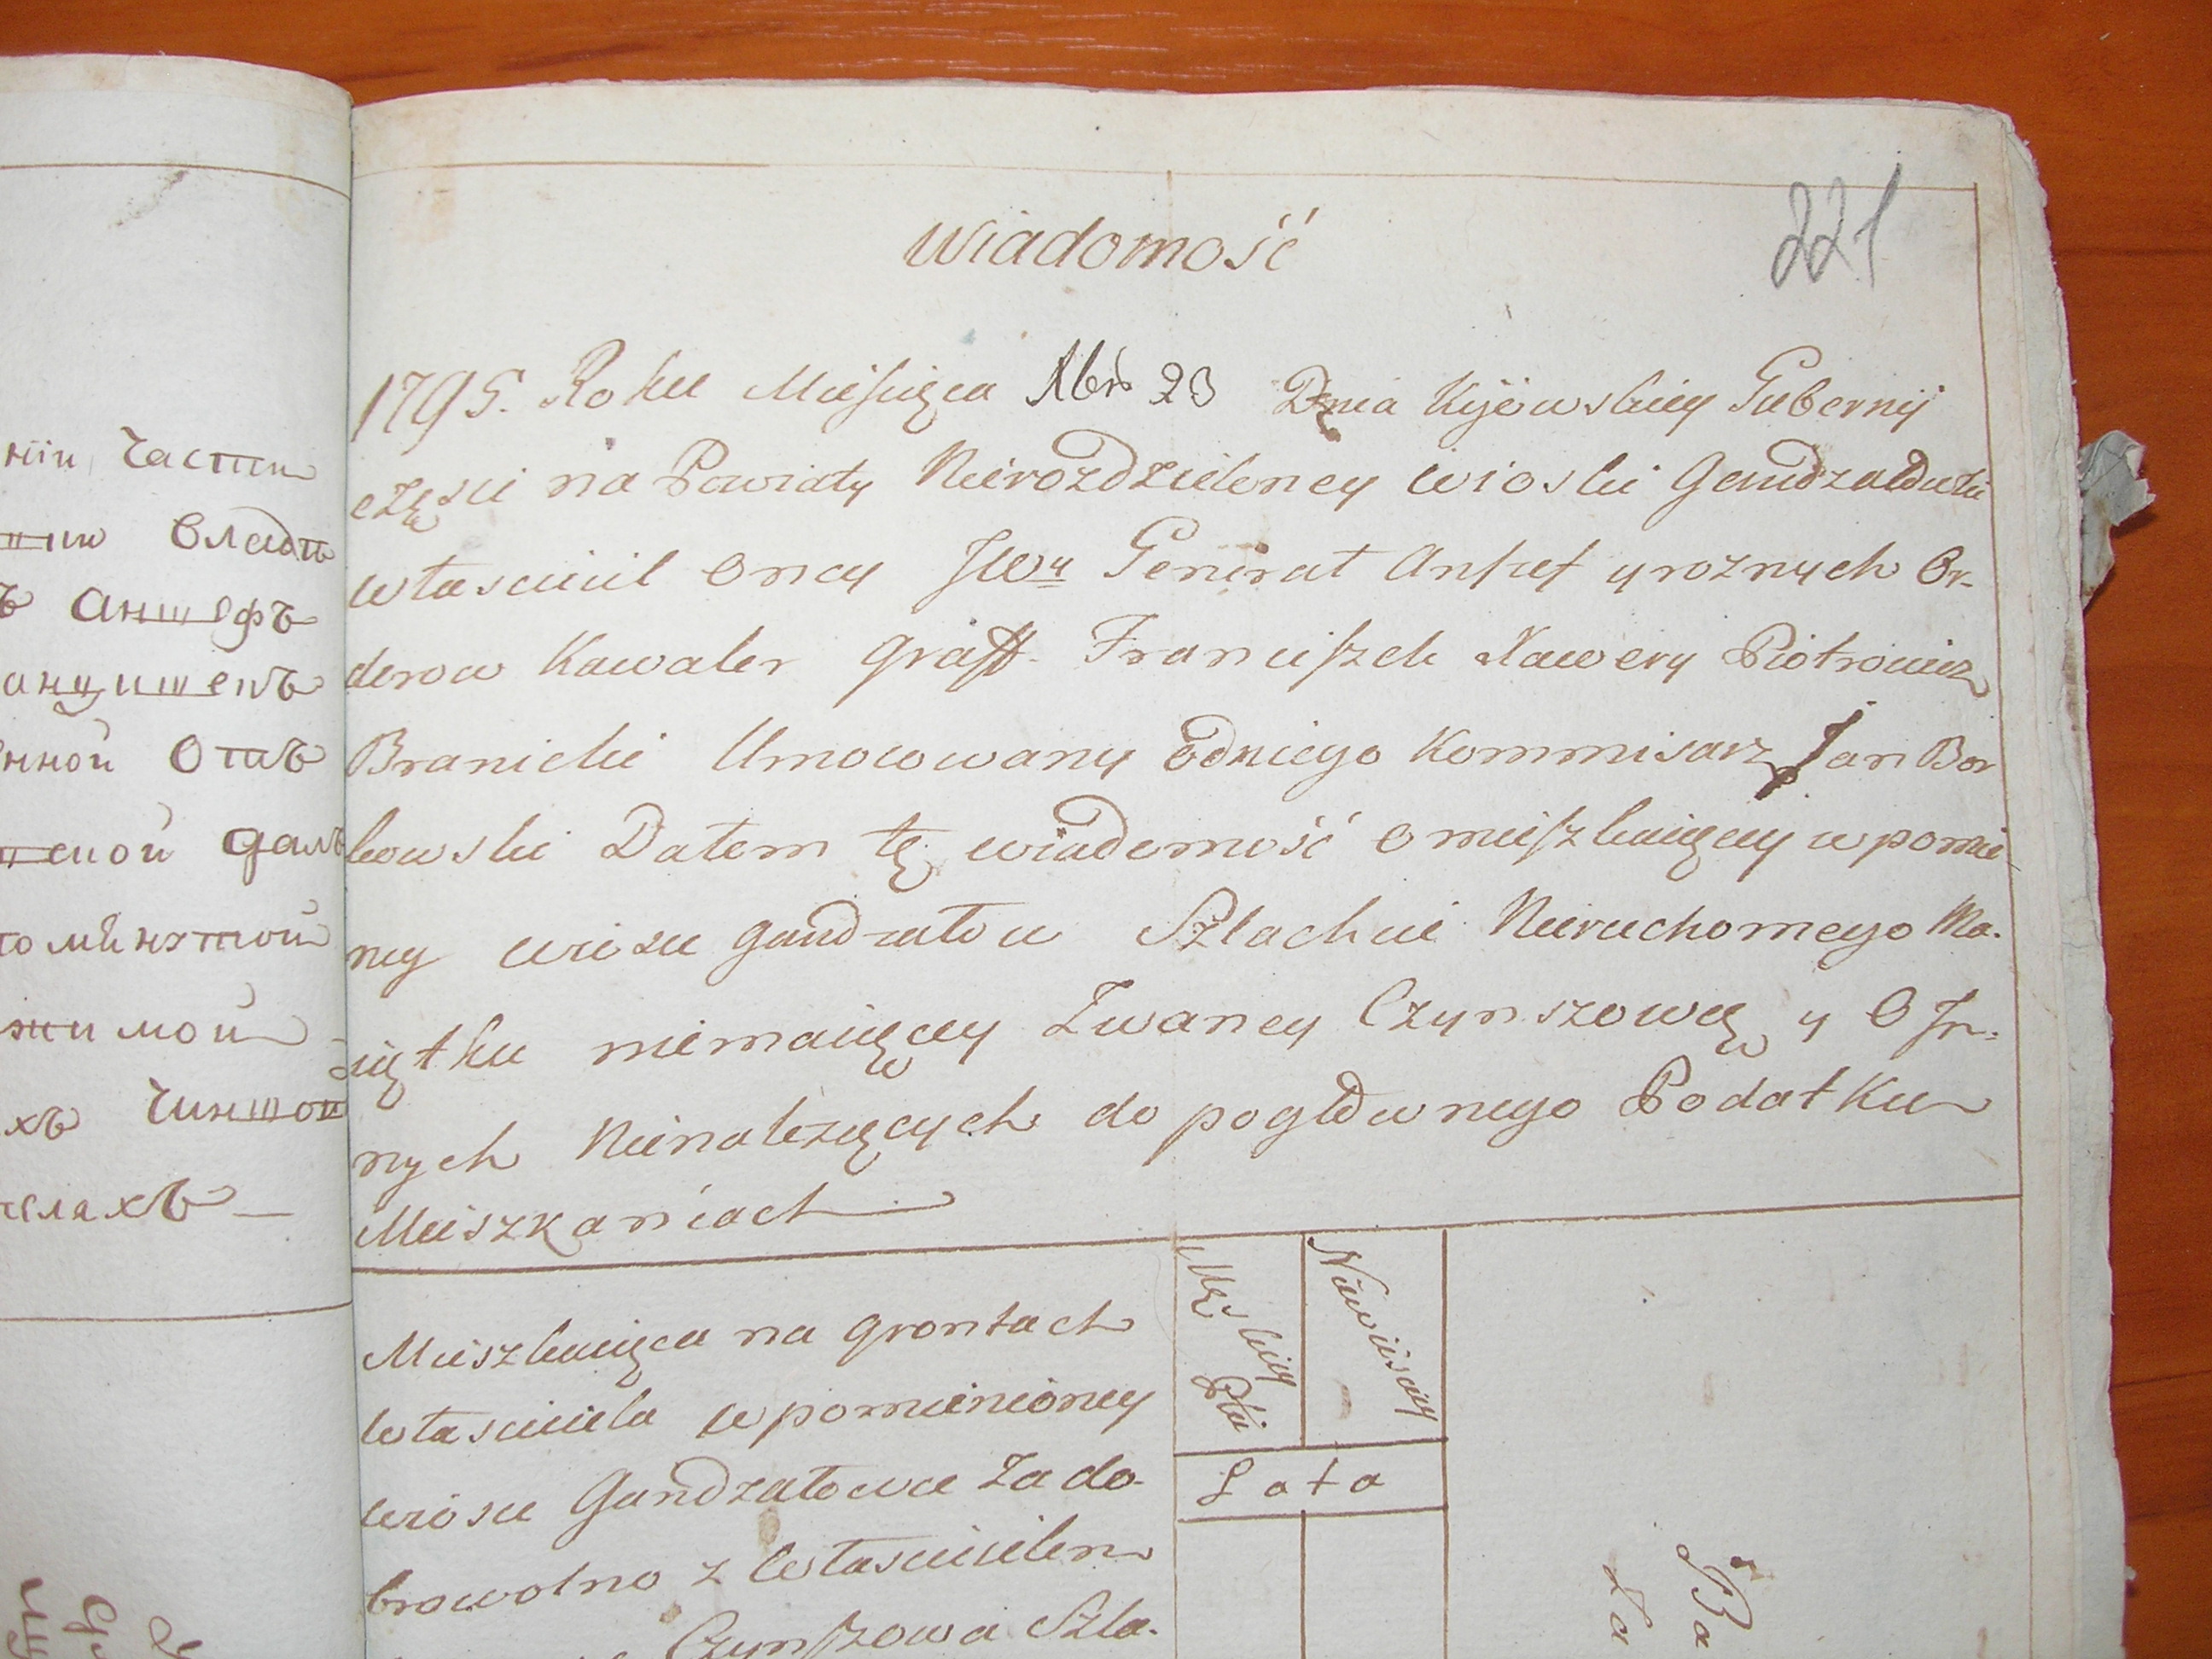 ніи части
владѣ
ъ Аншефъ
анцишекъ
нной отъ
ской далъ
помянутой
жимой
хъ Чиншов
телахъ —
Wiadomość
221
1795. Roku Miesięca Xbra 23 Dnia Kijowskiey Gubernij
częsci na Powiaty Nierozdzieloney wioski Gandzałówki
własciciel Oney JWy Generał Anszef y roznych Or-
derow Kawaler Graff Franciszek Xawery Piotrowicz
Branicki Umocowany odniego Kommisarz Jan Bor
kowski Dałem tę wiadomość o mieszkaiący w pomie-
ney wiosce Gandzałow Szlachcie Nieruchomego Ma-
iątku niemaiącey Zwaney Czynszowey y O In-
nych Nienależących do pogłownego Podatku
Mieszkańcach
Mieszkaiąca na grontach
własciciela w pomienioney
wiosce Gandzałowce za do-
browolno z włascicielem
Czynszowa Szla-
Męskiey Płci
Niewiesciey
Lata
Ba
La